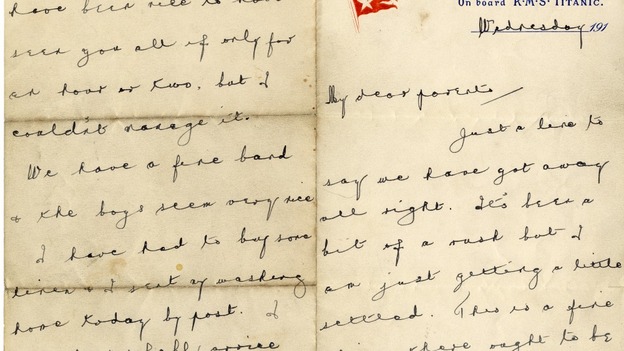 On board R.M.S. TITANIC.
Wednesday 191
My dear parents
Just a line to
say we have got away
all right. It's been a
bit of a rush but I
am just getting a little
settled. This is a fine
there ought to be
have been nice to have
seen you all if only for
an hour or two, but I
couldn't manage it.
We have a fine band
& the boys seem very nice
I have had to buy some
linen & I sent my washing
home today by post. I
arrive